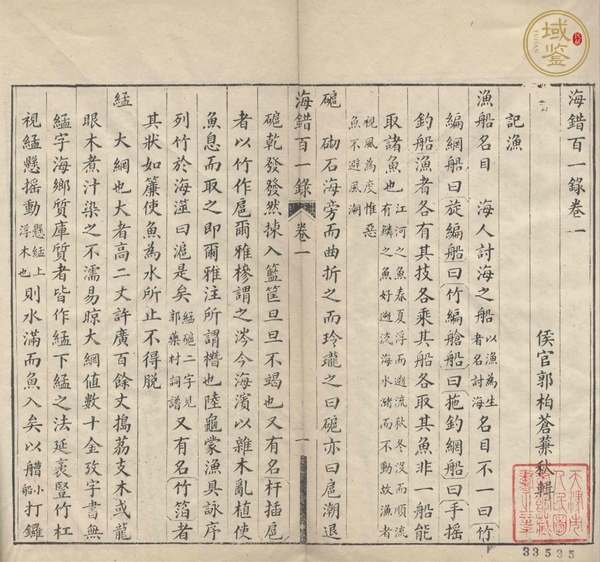 海錯百一錄卷一
侯官郭柏蒼蒹秋輯
記漁
漁船名目　海人討海之船以漁為生者名討海名目不一曰竹
編網船曰旋編船曰竹編艙船曰拖釣網船曰手搖
釣船漁者各有其技各乘其船各取其魚非一船能
取諸魚也江河之魚春夏浮而遡流秋冬沒而順流有鱗之魚好遡流海水潴而不動故漁者
視風為度惟惡魚不避風潮
䃶　砌石海旁而曲折之而玲瓏之曰䃶亦曰扈潮退
海錯百一錄　卷一　一
䃶乾發發然揀入籃筐旦旦不竭也又有名杆插扈
者以竹作扈爾雅椮謂之涔今海濱以雜木亂植使
魚息而取之即爾雅注所謂橬也陸龜蒙漁具詠序
列竹於海澨曰滬是矣䋄䃶二字見郭藥村詞譜又有名竹箔者
其狀如簾使魚為水所止不得脫
䋄　大網也大者高二丈許廣百餘丈搗荔支木或龍
眼木煮汁染之不濡易晾大網值數十金攷字書無
䋄字海鄉質庫質者皆作䋄下䋄之法延袤豎竹杠
視䋄懸搖動懸䋄上浮木也則水滿而魚入矣以艚小船打鑼
33535
域鑒
YUJIAN